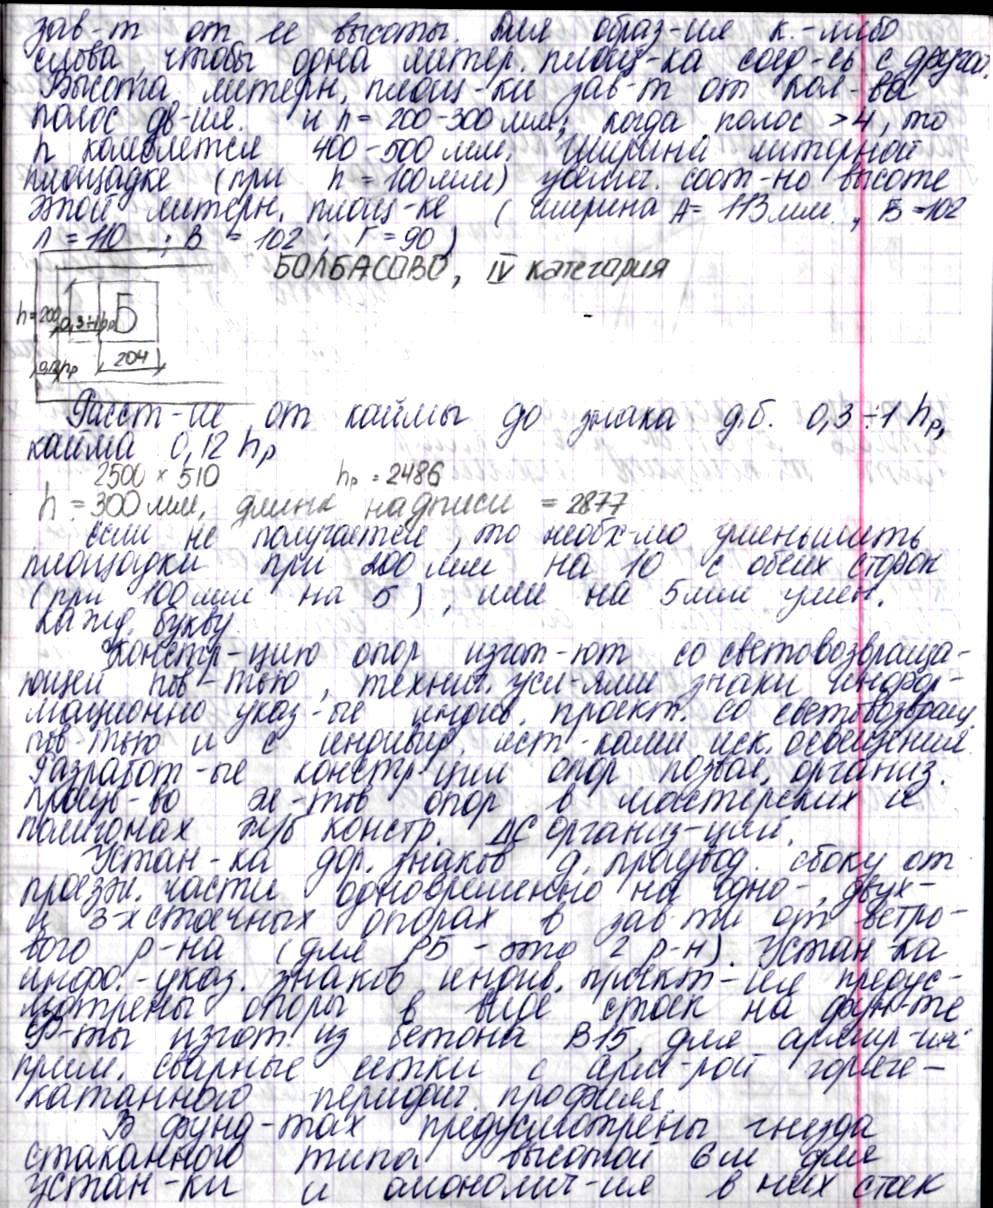 зав-т от ее высоты. Для образ-ия к.-либо
слова, чтобы одна литер. площ-ка соед-сь с другой.
Высота литерн. площ-ки зав-т от кол-ва
полос дв-ия. и h = 200-300 мм; когда полос >4, то
h колеблется 400-500 мм. Ширина литерной
площадке (при h = 100 мм) увелич. соот-но высоте
этой литерн. площ-ке (ширина А = 113 мм, Б = 102
Л = 110 ; В = 102 ; Г = 90)
БОЛБАСОВО, IV категория
h = 200
0,3÷1hр
Б
204
0,12hр
Расст-ие от каймы до знака д.б. 0,3÷1 hр,
кайма 0,12 hр
2500 × 510 hр = 2486
h = 300 мм, длина надписи = 2877
если не получается, то необх-мо уменьшить
площадки при 200 мм на 10 с обеих сторон
(при 100 мм на 5), или на 5 мм умен.
кажд. букву.
Констр-цию опор изгот-ют со световозвраща-
ющей пов-тью, технич. усл-ями знаки инфор-
мационно указ-ые индив. проект. со световозвращ.
пов-тью и с индивид. ист-ками иск. освещения.
Разработ-ые констр-ции опор позвол. организ.
произв-во эл-тов опор в мастерских и
полигонах ж/б констр. ДС организ-ций.
Устан-ка дор. знаков д. производ. сбоку от
проезж. части одновременно на одно-, двух-
и 3-х стоечных опорах в зав-ти от ветро-
вого р-на (для РБ - это 2 р-н). Устан-ка
инфо.-указ. знаков индив. проект-ия предус-
мотрены опоры в виде стоек на фун-те
Ф-ты изгот. из бетона В15, для армир-ия
прим. сварные сетки с арм-рой горяче-
катанного периодич. профиля.
В фунд-тах предусмотрены гнезда
стаканного типа высотой 6 м для
устан-ки и омонолич-ия в них стоек